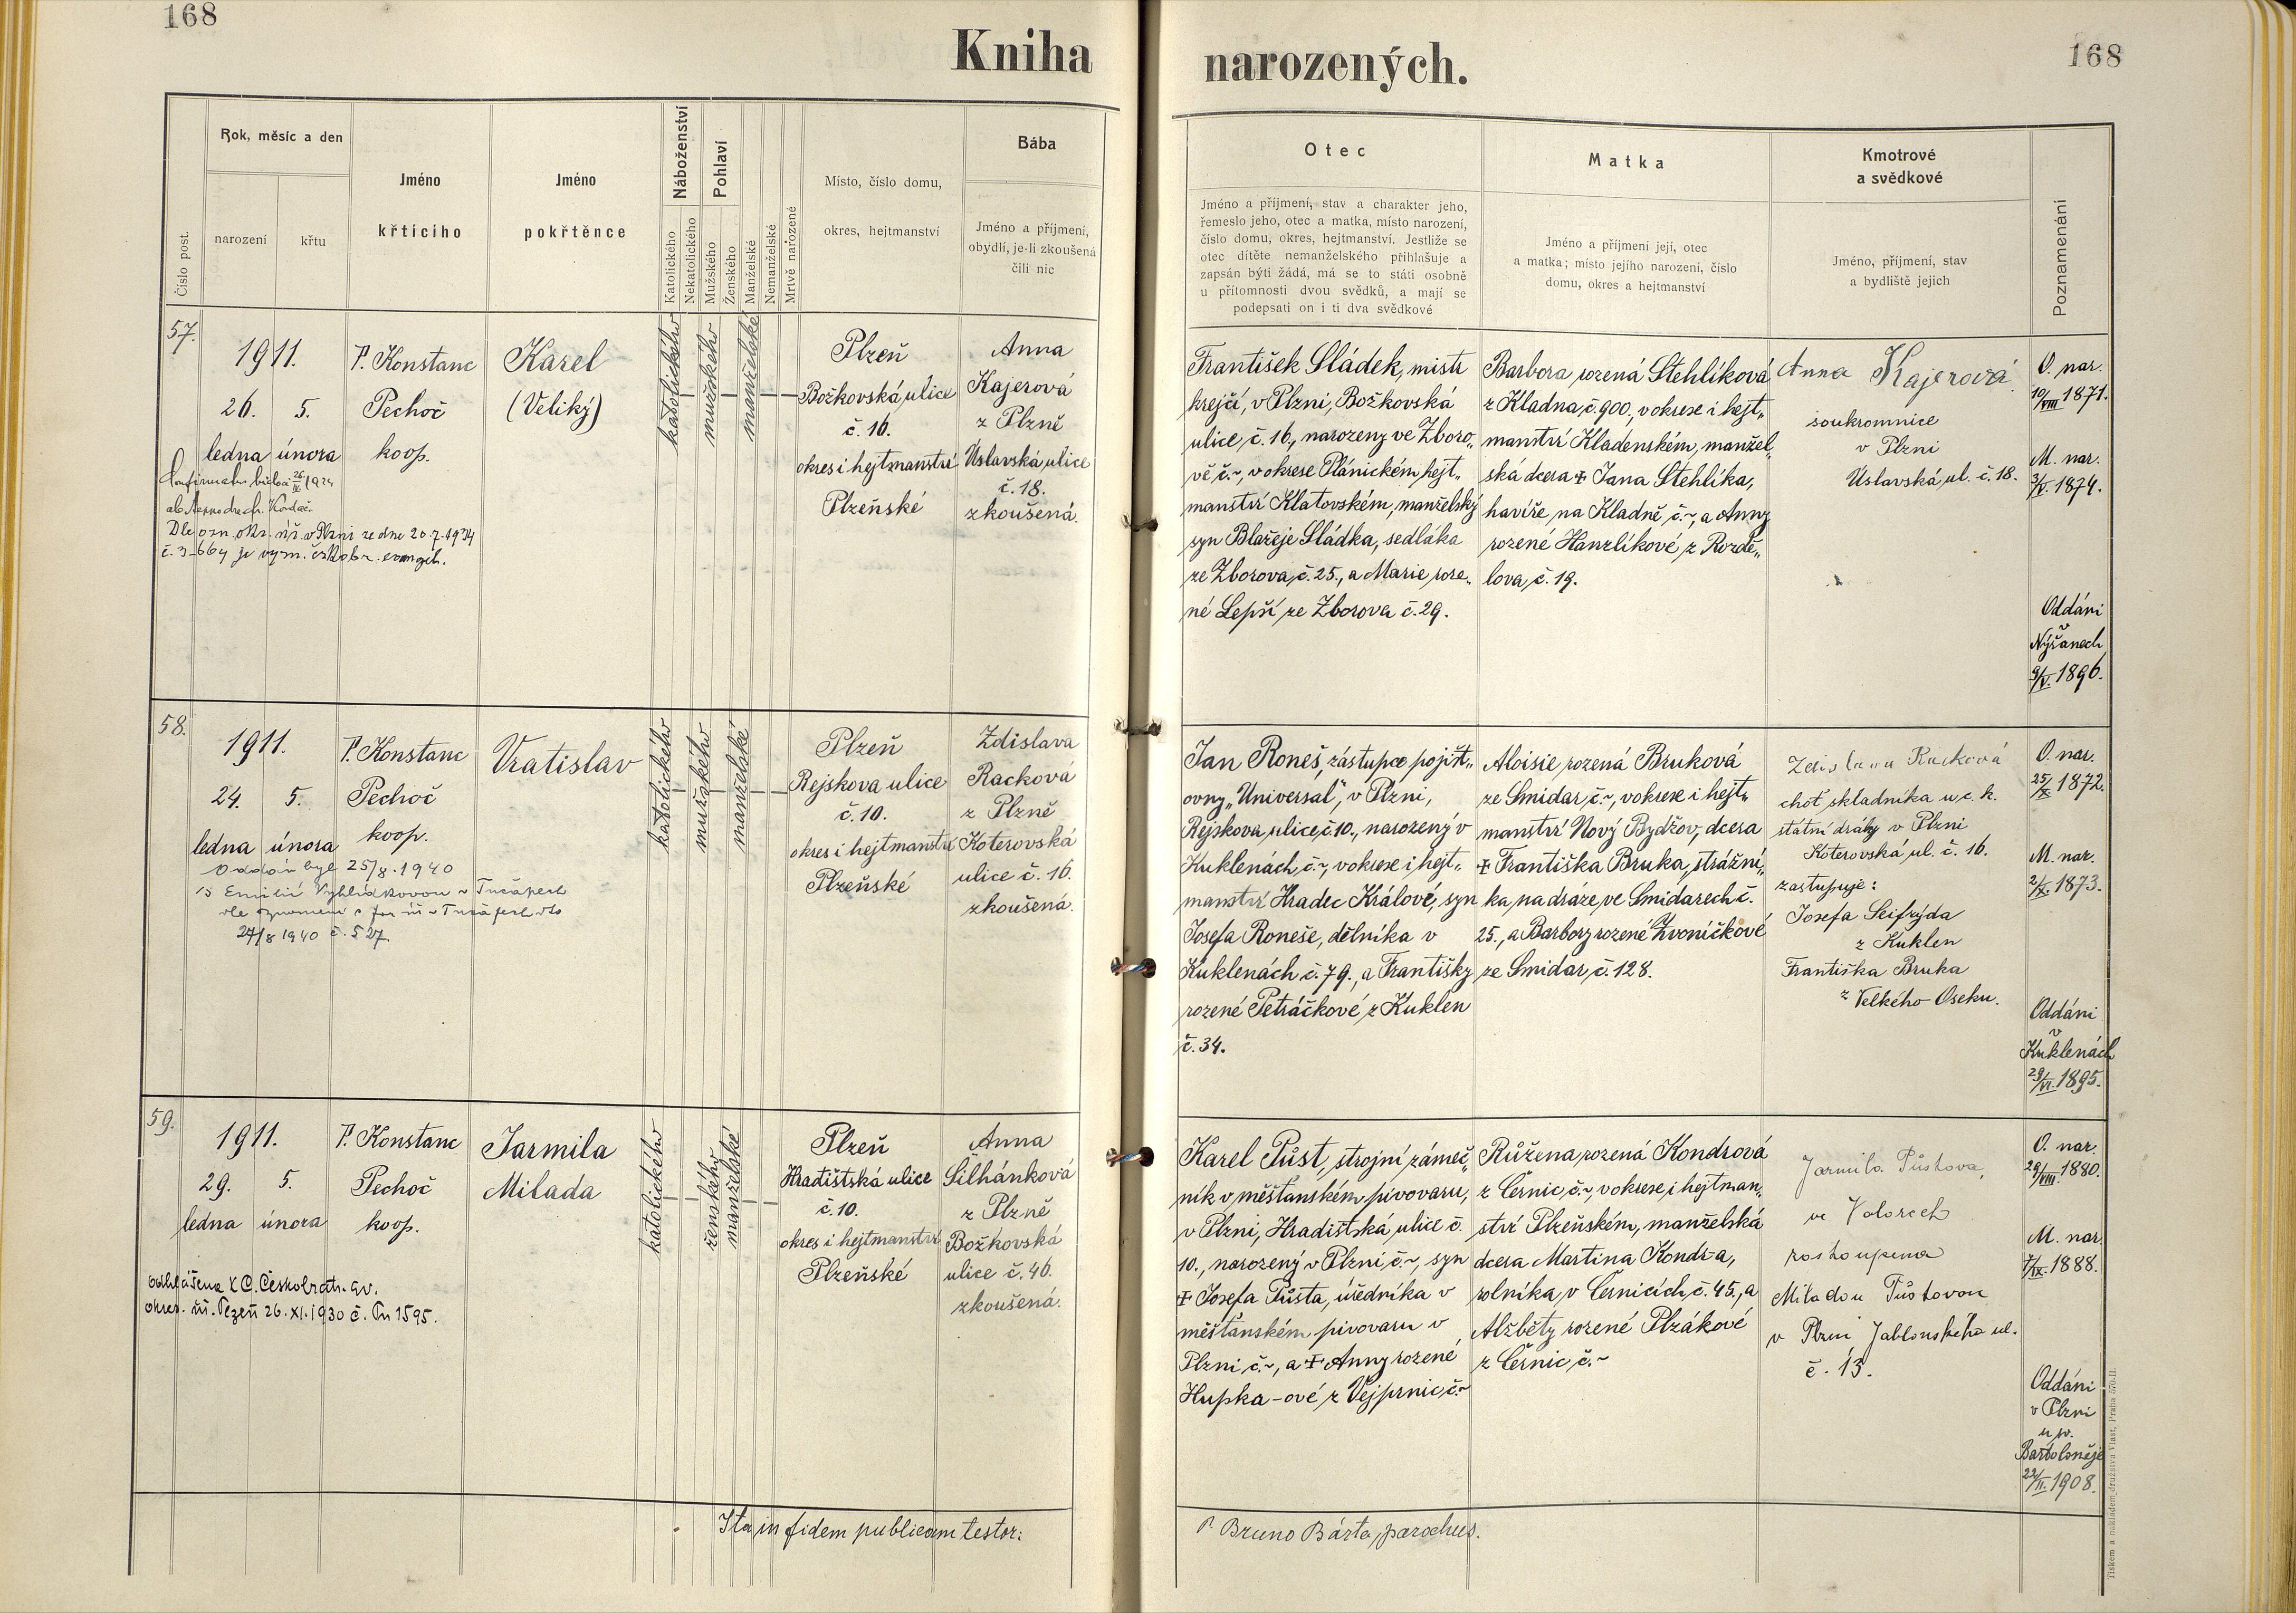 168
Kniha
narozených.
168
Číslo post.
Rok, měsíc a den
narození
křtu
Jméno
křtícího
Jméno
pokřtěnce
Náboženství
Katolického
Nekatolického
Pohlaví
Mužského
Ženského
Manželské
Nemanželské
Mrtvě narozené
Místo, číslo domu,
okres, hejtmanství
Bába
Jméno a příjmení,
obydlí, je-li zkoušená
čili nic
Otec
Jméno a příjmení, stav a charakter jeho,
řemeslo jeho, otec a matka, místo narození,
číslo domu, okres, hejtmanství. Jestliže se
otec dítěte nemanželského přihlašuje a
zapsán býti žádá, má se to státi osobně
u přítomnosti dvou svědků, a mají se
podepsati on i ti dva svědkové
Matka
Jméno a příjmení její, otec
a matka; místo jejího narození, číslo
domu, okres a hejtmanství
Kmotrové
a svědkové
Jméno, příjmení, stav
a bydliště jejich
Poznamenání
57.
1911.
26. 5.
ledna února
P. Konstanc
Pechoč
koop.
Karel
(Veliký)
katolického
mužského
manželské
Plzeň
Božkovská ulice
č. 16.
okres i hejtmanství
Plzeňské
Anna
Kajerová
z Plzně
Úslavská ulice
č. 18.
zkoušená.
Dle ozn. okr. úř. v Plzni ze dne 20.7.1934
č. 3-664 je vyzn. českobr. evangel.
František Sládek, mistr
krejčí, v Plzni, Božkovská
ulice, č. 16., narozený ve Zboro„
vě č.~, v okrese Plánickém, hejt„
manství Klatovském, manželský
syn Blažeje Sládka, sedláka
ze Zborova, č. 25., a Marie, roze„
né Lepší ze Zborova č. 29.
Barbora rozená Stehlíková
z Kladna, č. 900., v okrese i hejt„
manství Kladenském, manžel„
ská dcera ‡ Jana Stehlíka,
havíře na Kladně č.~, a Anny
rozené Hanzlíkové z Rozdě„
lova, č. 19.
Anna Kajerová
soukromnice
v Plzni
Úslavská ul. č. 18.
O. nar.
10/VIII 1871.
M. nar.
3/V. 1874.
Oddáni
v
Nýřanech
9/V. 1896.
58.
1911.
24. 5.
ledna února
P. Konstanc
Pechoč
koop.
Vratislav
katolického
mužského
manželské
Plzeň
Rejskova ulice
č. 10.
okres i hejtmanství
Plzeňské
Zdislava
Racková
z Plzně
Koterovská
ulice č. 16.
zkoušená.
Oddán byl 25/8.1940
27/8 1940 č. 527.
Jan Roneš, zástupce pojišť„
ovny „Universal", v Plzni,
Rejskova ulice, č. 10., narozený v
Kuklenách, č.~, v okrese i hejt„
manství Hradec Králové, syn
Josefa Roneše, dělníka v
Kuklenách č. 79., a Františky
rozené Petráčkové z Kuklen
č. 34.
Aloisie rozená Bruková
ze Smidar, č.~, v okrese i hejt„
manství Nový Bydžov, dcera
‡ Františka Bruka, strážní„
ka na dráze, ve Smidarech č.
25., a Barbory rozené Zvoničkové
ze Smidar č. 128.
Zdislava Racková
choť skladníka u c. k.
státní dráhy v Plzni
Koterovská ul. č. 16.
zastupuje:
Josefa Seifrýda
z Kuklen
Františka Bruka
z Velkého Oseku.
O. nar.
25/X 1872.
M. nar.
2/X. 1873.
Oddáni
v
Kuklenách
29/VI. 1895.
59.
1911.
29. 5.
ledna února
P. Konstanc
Pechoč
koop.
Jarmila
Milada
katolického
ženského
manželské
Plzeň
Hradištská ulice
č. 10.
okres i hejtmanství
Plzeňské
Anna
Šilhánková
z Plzně
Božkovská
ulice č. 46.
zkoušená.
odhlášena k C. Českobratr. ev.
okres. úř. Plzeň 26. XI. 1930 č. Pn 1595.
Karel Půst, strojní zámeč„
ník v měšťanském pivovaru,
v Plzni, Hradištská ulice č.
10., narozený v Plzni, č.~, syn
‡ Josefa Půsta, úředníka v
měšťanském pivovaru v
Plzni č.~, a ‡ Anny rozené
Hupka-ové z Vejprnic, č.~
Růžena rozená Kondrová
z Černic, č.~, v okrese i hejtman„
ství Plzeňském, manželská
dcera Martina Kondr-a,
rolníka, v Černicích č. 45., a
Alžběty rozené Plzákové
z Černic, č.~
Jarmila Půstova,
ve Volarech
zastoupena
Miladou Půstovou
v Plzni Jablonského ul.
č. 13.
O. nar.
29/VIII. 1880.
M. nar.
7/IX. 1888.
Oddáni
v Plzni
u sv.
Bartoloměje
22/II. 1908.
Ita in fidem publicam testor:
P. Bruno Bárta, parochus.
Tiskem a nákladem družstva Vlast, Praha 570-II.